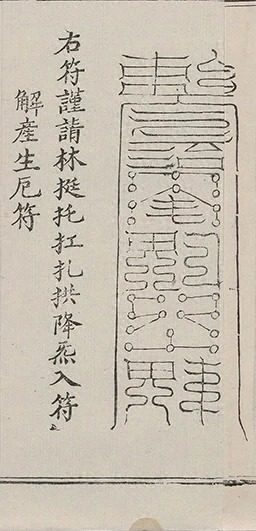 右符謹請林挺托扛扎拱降炁入符
解產生厄符